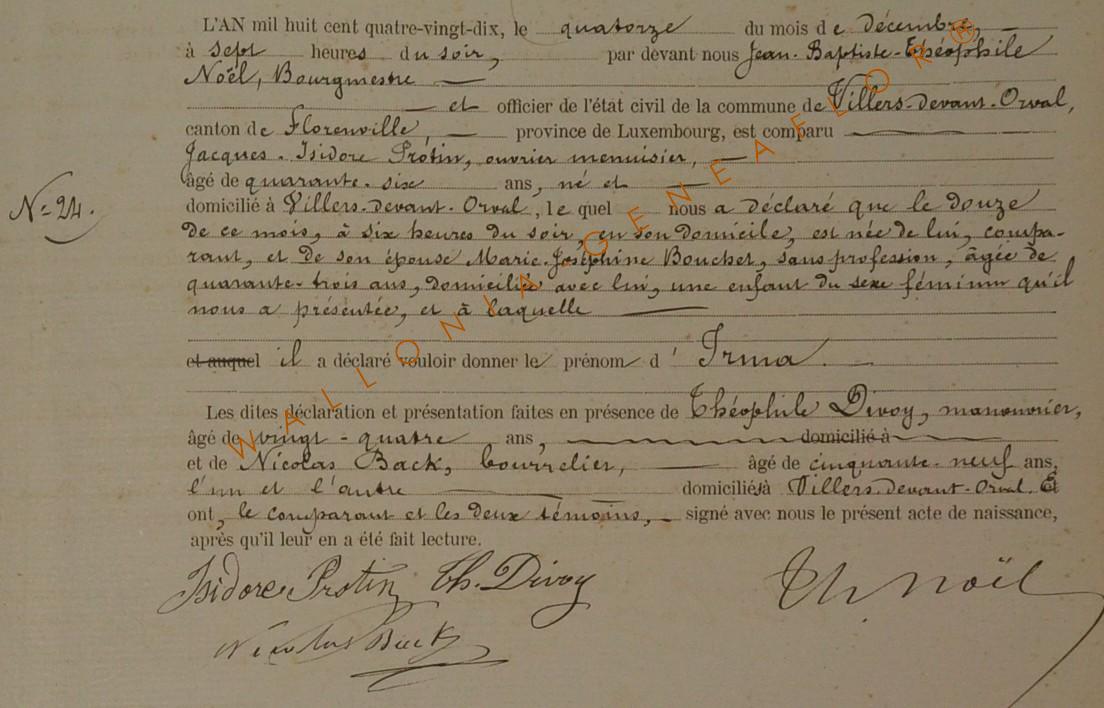 L'AN mil huit cent quatre-vingt-dix, le quatorze du mois de décembre,
à sept heures du soir, par devant nous Jean-Baptiste-Théophile
Noël, Bourgmestre
et officier de l'état civil de la commune de Villers-devant-Orval,
canton de Florenville, province de Luxembourg, est comparu
Jacques-Isidore Protin, ouvrier menuisier,
âgé de quarante-six ans, né et
N° 24.
domicilié à Villers-devant-Orval, lequel nous a déclaré que le douze
de ce mois, à six heures du soir, en son domicile, est née de lui, compa-
rant, et de son épouse Marie-Joséphine Bouchet, sans profession, âgée de
quarante-trois ans, domiciliée avec lui, une enfant du sexe féminin qu'il
nous a présentée, et à laquelle
et auquel il a déclaré vouloir donner le prénom d'Irma
Les dites déclaration et présentation faites en présence de Théophile Divoy, manouvrier,
âgé de vingt-quatre ans, domicilié à
et de Nicolas Back, bourrelier, âgé de cinquante-neuf ans,
l'un et l'autre domiciliés à Villers-devant-Orval. Et
ont, le comparant et les deux témoins, signé avec nous le présent acte de naissance,
après qu'il leur en a été fait lecture.
Isidore Protin Th. Divoy Th Noël
Nicolas Back
WALLONIA-GENEAFLOR®